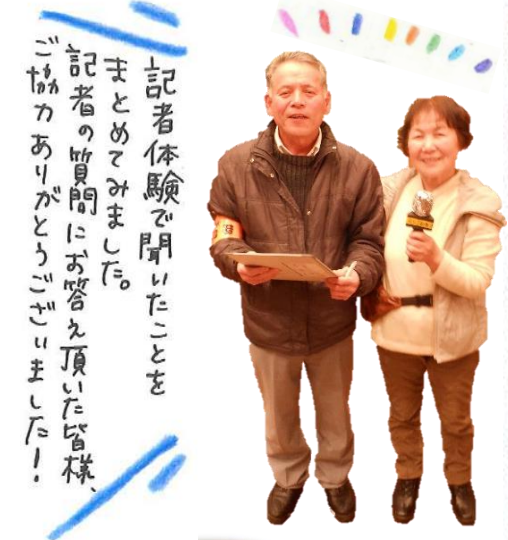 記者体験で聞いたことを
まとめてみました。
記者の質問にお答え頂いた皆様、
ご協力ありがとうございました!